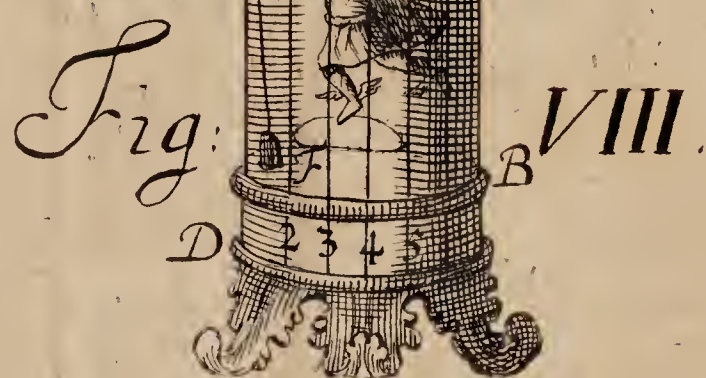 Fig: VIII.
F B
D 2 3 4 5